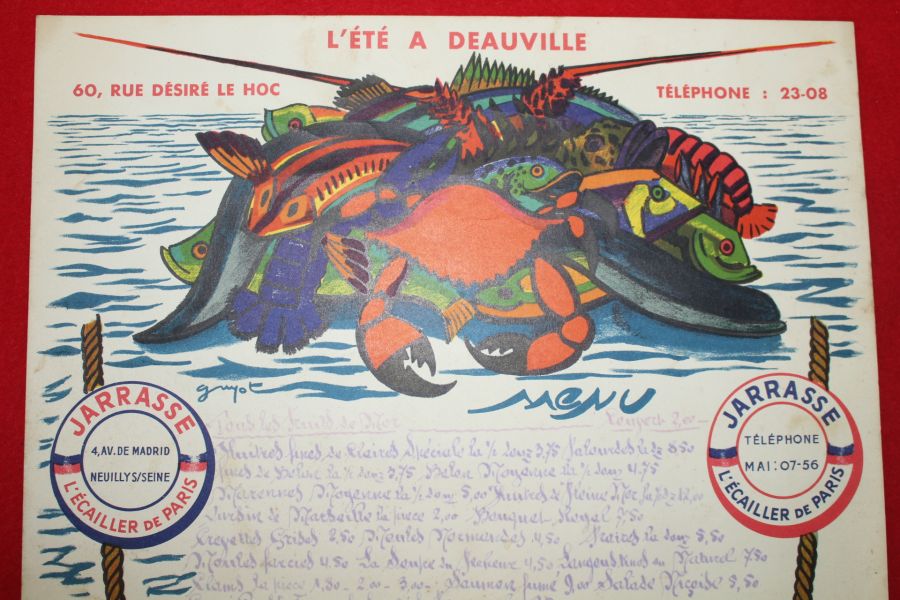 L'ÉTÉ A DEAUVILLE
60, RUE DÉSIRÉ LE HOC
TÉLÉPHONE : 23-08
guyot
MENU
JARRASSE
4, AV. DE MADRID
NEUILLY S/SEINE
L'ÉCAILLER DE PARIS
JARRASSE
TÉLÉPHONE
MAI : 07-56
L'ÉCAILLER DE PARIS
Tous les Fruits de Mer Couvert 2,00
Huitres fines de Claires Spéciale la ½ douz 3,75 Palourdes la dz 8,50
fines de Belon la ½ douz 3,75 Belon Moyenne la ½ douz 4,75
Marennes Moyenne la ½ douz 5,00 Huitres de Pleine Mer la 12,00
de Marseille la pièce 2,00 Bouquet Royal 7,50
Crevettes Grises 2,50 Moules Normandes 4,50 Praires la douz 5,50
Moules farcies 4,50 La Soupe du Pêcheur 4,50 Langoustines au Naturel 7,50
Clams la pièce 1,80 - 2,00 - 3,00 - Saumon fumé 9,00 Salade Niçoise 5,50